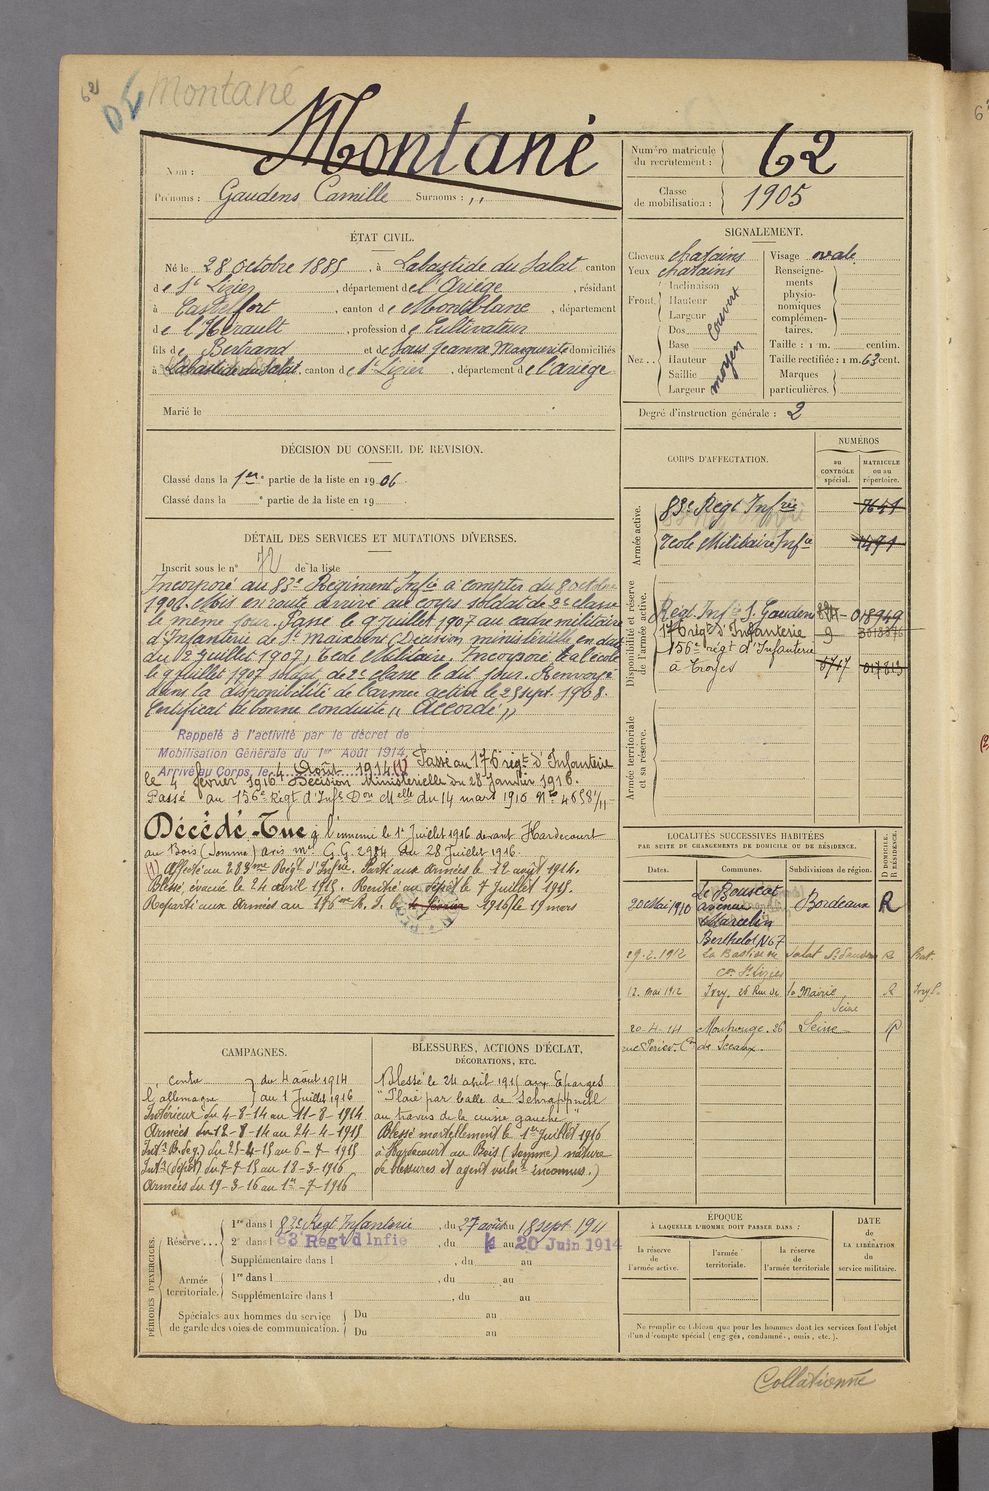 62
Montané
Nom : Montané
Prénoms : Gaudens Camille Surnoms : ,,
Numéro matricule
du recrutement : 62
Classe
de mobilisation : 1905
ÉTAT CIVIL.
Né le 28 Octobre 1885, à Labastide du Salat canton
de St Lizier, département de l'Ariège, résidant
à Castelfort, canton de Montblanc, département
de l'Hérault, profession de Cultivateur
fils de Bertrand et de Sous Jeanne Marguerite domiciliés
à Labastide du Salat, canton de St Lizier, département de l'ariège
Marié le
SIGNALEMENT.
Cheveux chatains
Yeux chatains
Front.
Inclinaison
Hauteur
Largeur
couvert
Nez..
Dos
Base
Hauteur
Saillie
Largeur
moyen
Visage ovale
Renseigne-
ments
physio-
nomiques
complémen-
taires.
Taille : 1 m. centim.
Taille rectifiée : 1 m. 63 cent.
Marques
particulières.
Degré d'instruction générale : 2
DÉCISION DU CONSEIL DE REVISION.
Classé dans la 1ère partie de la liste en 1906
Classé dans la e partie de la liste en 19
DÉTAIL DES SERVICES ET MUTATIONS DIVERSES.
Inscrit sous le n° 72 de la liste
Incorporé au 83e Régiment Infie à compter du 8 octobre
1906. Mis en route arrivé au corps soldat de 2e classe
le même jour. Passé le 9 Juillet 1907 au cadre militaire
d'Infanterie de St Maixent (Décision ministérielle en date
du 12 Juillet 1907) Ecole Militaire. Incorporé à l'école
le 9 Juillet 1907 soldat de 2e classe le dit jour. Renvoyé
dans la disponibilité de l'armée active le 25 sept. 1908.
Certificat de bonne conduite ,, Accordé ,,
Rappelé à l'activité par le décret de
Mobilisation Générale du 1er Août 1914.
Arrivé au Corps, le 4 Août 1914 (1) Passé au 176 régt d'Infanterie
le 4 février 1916 Décision Ministérielle du 28 Janvier 1916.
Passé au 156e Régt d'Infie Don Melle du 14 mars 1916 No 4658 1/11
Décédé - Tué à l'ennemi le 1er Juillet 1916 devant Hardecourt
au Bois (Somme) avis ml G.G. 2984 du 28 Juillet 1916.
(1) Affecté au 283me Régt d'Infie. Parti aux armées le 12 août 1914.
Blessé, évacué le 24 avril 1915. Rentré au dépôt le 7 Juillet 1915.
Reparti aux Armées au 156me R. I. le 4 février 1916 le 19 mars
CORPS D'AFFECTATION.
NUMÉROS
au
CONTRÔLE
spécial.
MATRICULE
ou au
répertoire.
Armée active.
83e Régt Infie 7651
Ecole Militaire Infie 1491
Disponibilité et réserve
de l'armée active.
Régt. Infie St. Gaudens 018949
176 régt d'Infanterie 9
156e régt d'Infanterie
à Troyes 6717 017813
Armée territoriale
et sa réserve.
LOCALITÉS SUCCESSIVES HABITÉES
PAR SUITE DE CHANGEMENTS DE DOMICILE OU DE RÉSIDENCE.
Dates. Communes. Subdivisions de région. D DOMICILE. R RÉSIDENCE.
20 Mai 1910 Le Bouscat
avenue
Marcelin
Berthelot N° 67 Bordeaux R
29.2.1912 La Bastide du Salat St Gaudens R
con St Lizier
12. mai 1912 Ivry, 26 Rue de la Mairie R
Seine
20-4-14 Montrouge. 26 Seine R
rue Périer. Con de Sceaux.
CAMPAGNES.
contre
l'allemagne
du 4 août 1914
au 1 Juillet 1916
Intérieur du 4-8-14 au 11-8-1914
Armées du 12-8-14 au 24-4-1915
Intr (B. de g.) du 25-4-15 au 6-7-1915
Intr (dépôt) du 7-7-15 au 18-3-1916
Armées du 19-3-16 au 1er-7-1916
BLESSURES, ACTIONS D'ÉCLAT,
DÉCORATIONS, ETC.
Blessé le 24 avril 1915 aux Eparges
"Plaie par balle de Schrappnell
au travers de la cuisse gauche"
Blessé mortellement le 1er Juillet 1916
à Hardecourt au Bois (Somme) nature
de blessures et agent vulnt inconnus.)
PÉRIODES D'EXERCICES.
Réserve....
1re dans l 83e Régt Infanterie, du 27 août au 18 sept 1911
2e dans l 83 Régt d'Infie, du 4 au 20 Juin 1914
Supplémentaire dans l , du au
Armée
territoriale.
1re dans l , du au
Supplémentaire dans l , du au
Spéciales aux hommes du service
de garde des voies de communication.
Du au
Du au
ÉPOQUE
À LAQUELLE L'HOMME DOIT PASSER DANS :
la réserve
de
l'armée active.
l'armée
territoriale.
la réserve
de
l'armée territoriale
DATE
de
LA LIBÉRATION
du
service militaire.
Ne remplir ce tableau que pour les hommes dont les services font l'objet
d'un décompte spécial (engagés, condamnés, omis, etc.).
Collationné